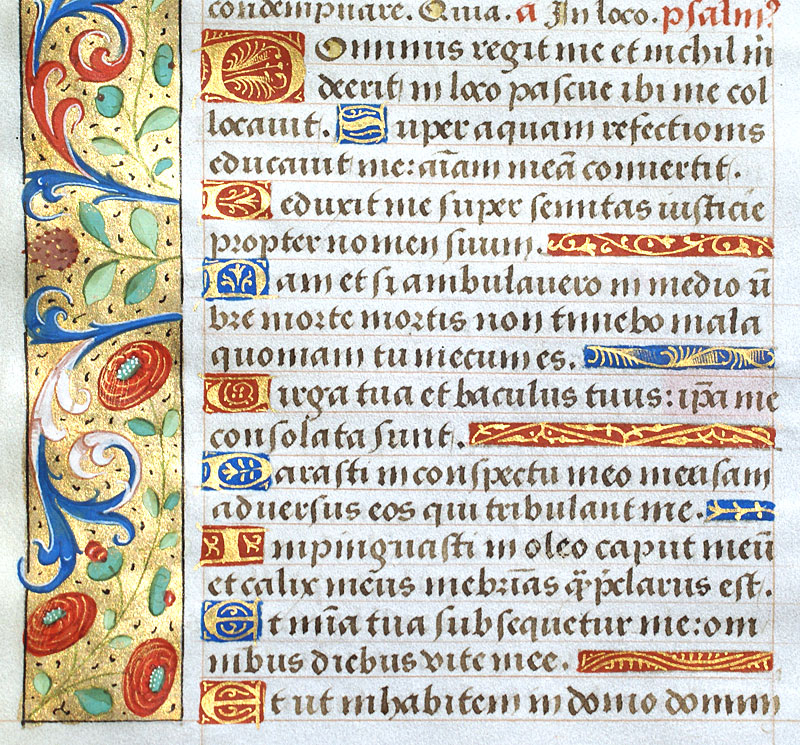 condempnare. Quia. a In loco. psalm9
Dominus regit me et nichil m̄
deerit in loco pascue ibi me col
locauit. Super aquam refectionis
educauit me: aīam meā conuertit.
Deduxit me super semitas iusticie
propter nomen suum.
Nam et si ambulauero in medio ū
bre morte mortis non timebo mala
quoniam tu mecum es.
Virga tua et baculus tuus: ip̄a me
consolata sunt.
Parasti in conspectu meo mensam
aduersus eos qui tribulant me.
Impinguasti in oleo caput meū
et calix meus inebriās q̄ p̄clarus est.
Et mīa tua subsequetur me: om
nibus diebus vite mee.
Et ut inhabitem in domo domini